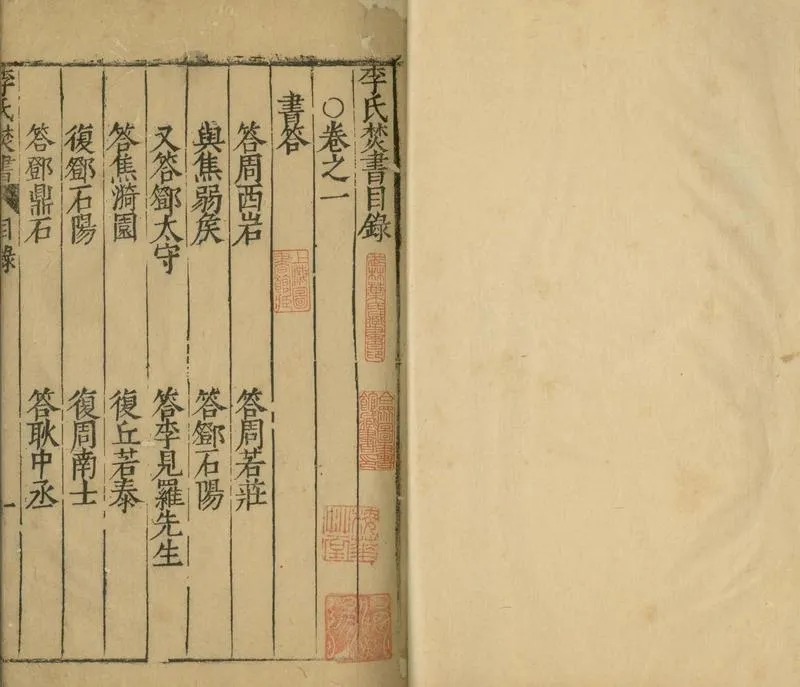 李氏焚書目錄
○卷之一
書答
答周西岩 答周若莊
與焦弱矦 答鄧石陽
又答鄧太守 答李見羅先生
答焦漪園 復丘若泰
復鄧石陽 復周南士
答鄧鼎石 答耿中丞
李氏焚書 目錄 一
上海圖書館藏